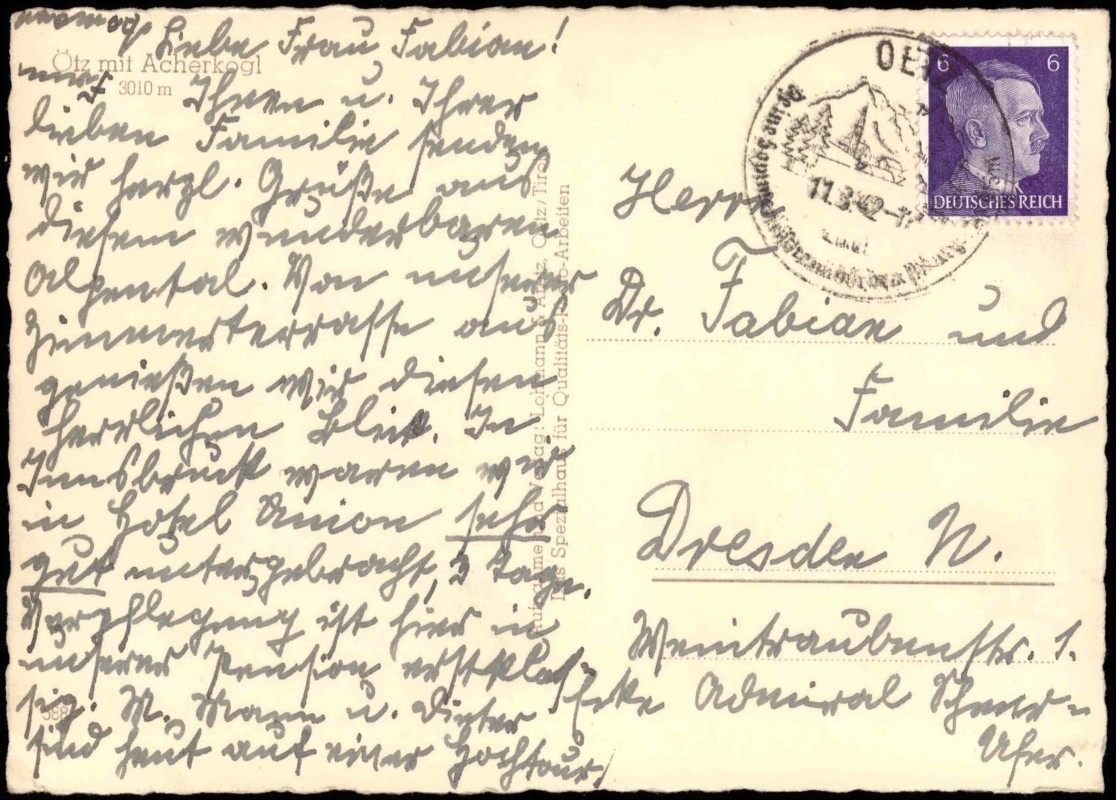 Ötz mit Acherkogl
3010 m
Liebe Frau Fabian!
Ihnen u. Ihrer
lieben Familie senden
wir herzl. Grüße aus
diesem wunderbaren
Alpental. Von unserer
Zimmerterrasse aus
genießen wir diesen
herrlichen Blick. In
Innsbruck waren wir
in Hotel Union sehr
gut untergebracht, 3 Tage.
Verpflegung ist hier in
unserer Pension erstklas-
sig. M. Mann u. Dieter
sind heut auf einer Hochtour,
Aufnahme und Verlag: Lohmann & Arnz, Oetz/Tirol
Das Spezialhaus für Qualitäts-Photo-Arbeiten
OETZ
11.8.42
6 6
DEUTSCHES REICH
Herrn
Dr. Fabian und
Familie
Dresden N.
Weintraubenstr. 1.
Ecke Admiral Scheer-
Ufer.